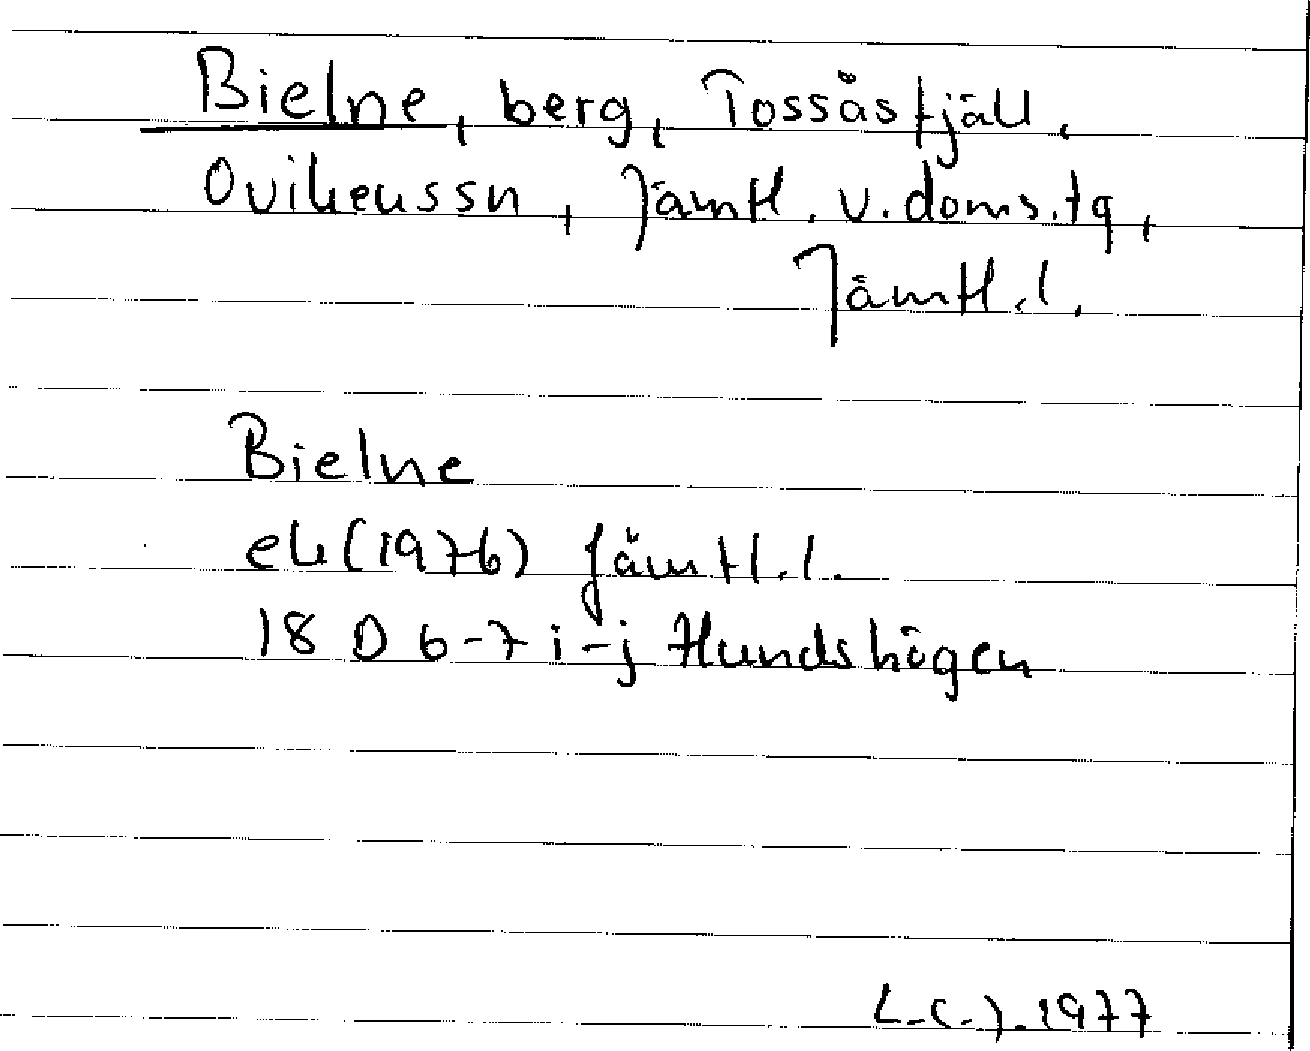 Bielne, berg, Tossåsfjäll,
Ovikenssn, Jämtl. v. doms.tg,
Jämtl.l.
Bielne
ek (1976) Jämtl.l.
18 D 6-7 i-j Hundshögen
L-C-J. 1977